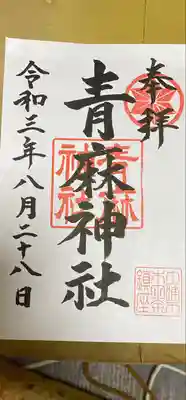 奉拝
青麻神社
令和三年八月二十八日
青麻神社